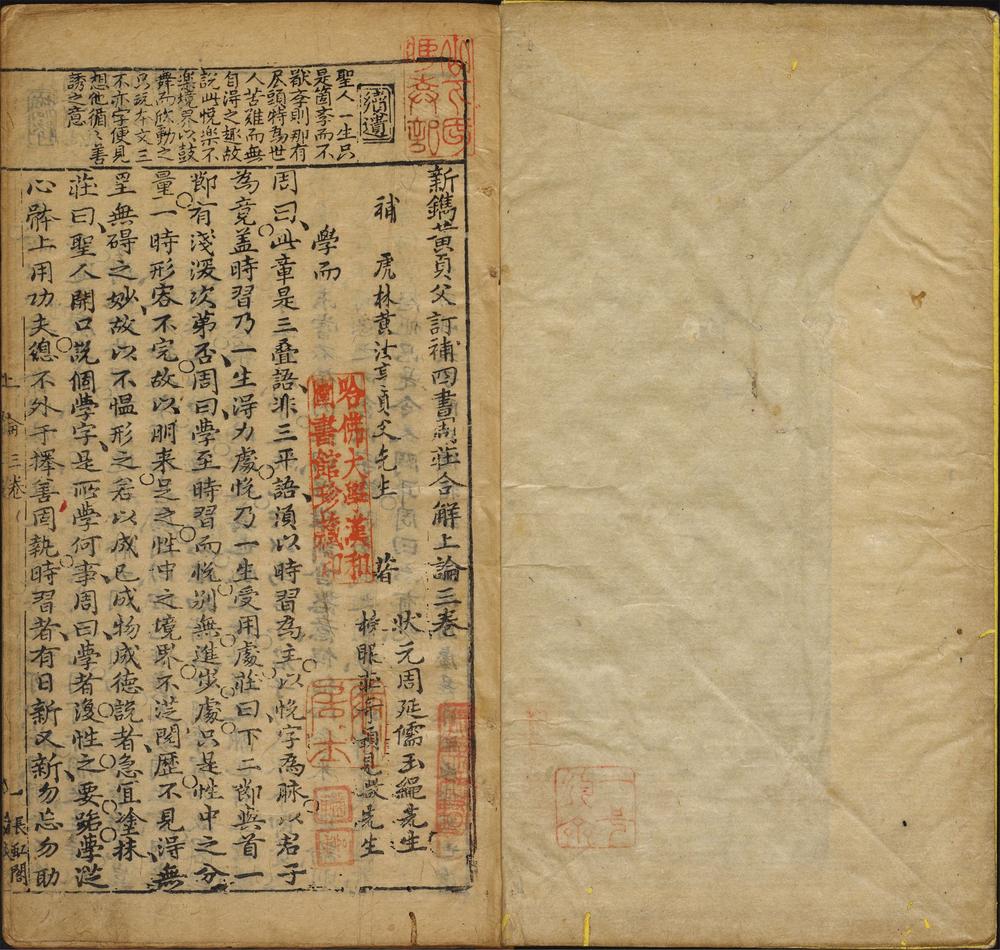 新鐫黄貞父訂補四書周莊合解上論三卷
狀元周延儒玉繩先生
補 虎林黄汝亨貞父先生 著
榜眼莊奇顯見微先生
學而
周曰此章是三叠語非三平語湏以時習為主以悅字為脉以君子
為竟蓋時習乃一生淂力處悅乃一生受用處莊曰下二節與首一
節有淺深次第否周曰學至時習而悅別無進步處只是性中之分
量一時形容不完故以朋来足之性中之境界不淫閱歷不見得無
罣無碍之妙故以不愠形之君以成己成物成德說者急宜塗抹
莊曰聖人開口說個學字是所學何事周曰學者復性之要踮學淫
心體上用功夫總不外于擇善固執時習者有日新又新勿忘勿助
摘遺
聖人一生只
是箇李而不
厭李則那有
尽頭特為世
人苦難而無
自淂之趣故
說此悅樂不
樂境界以鼓
舞而欣動之
只玩本文三
不亦字便見
想他循循善
誘之意
哈佛大學漢和
圖書館珍藏印
上論三卷
一
長虹閣